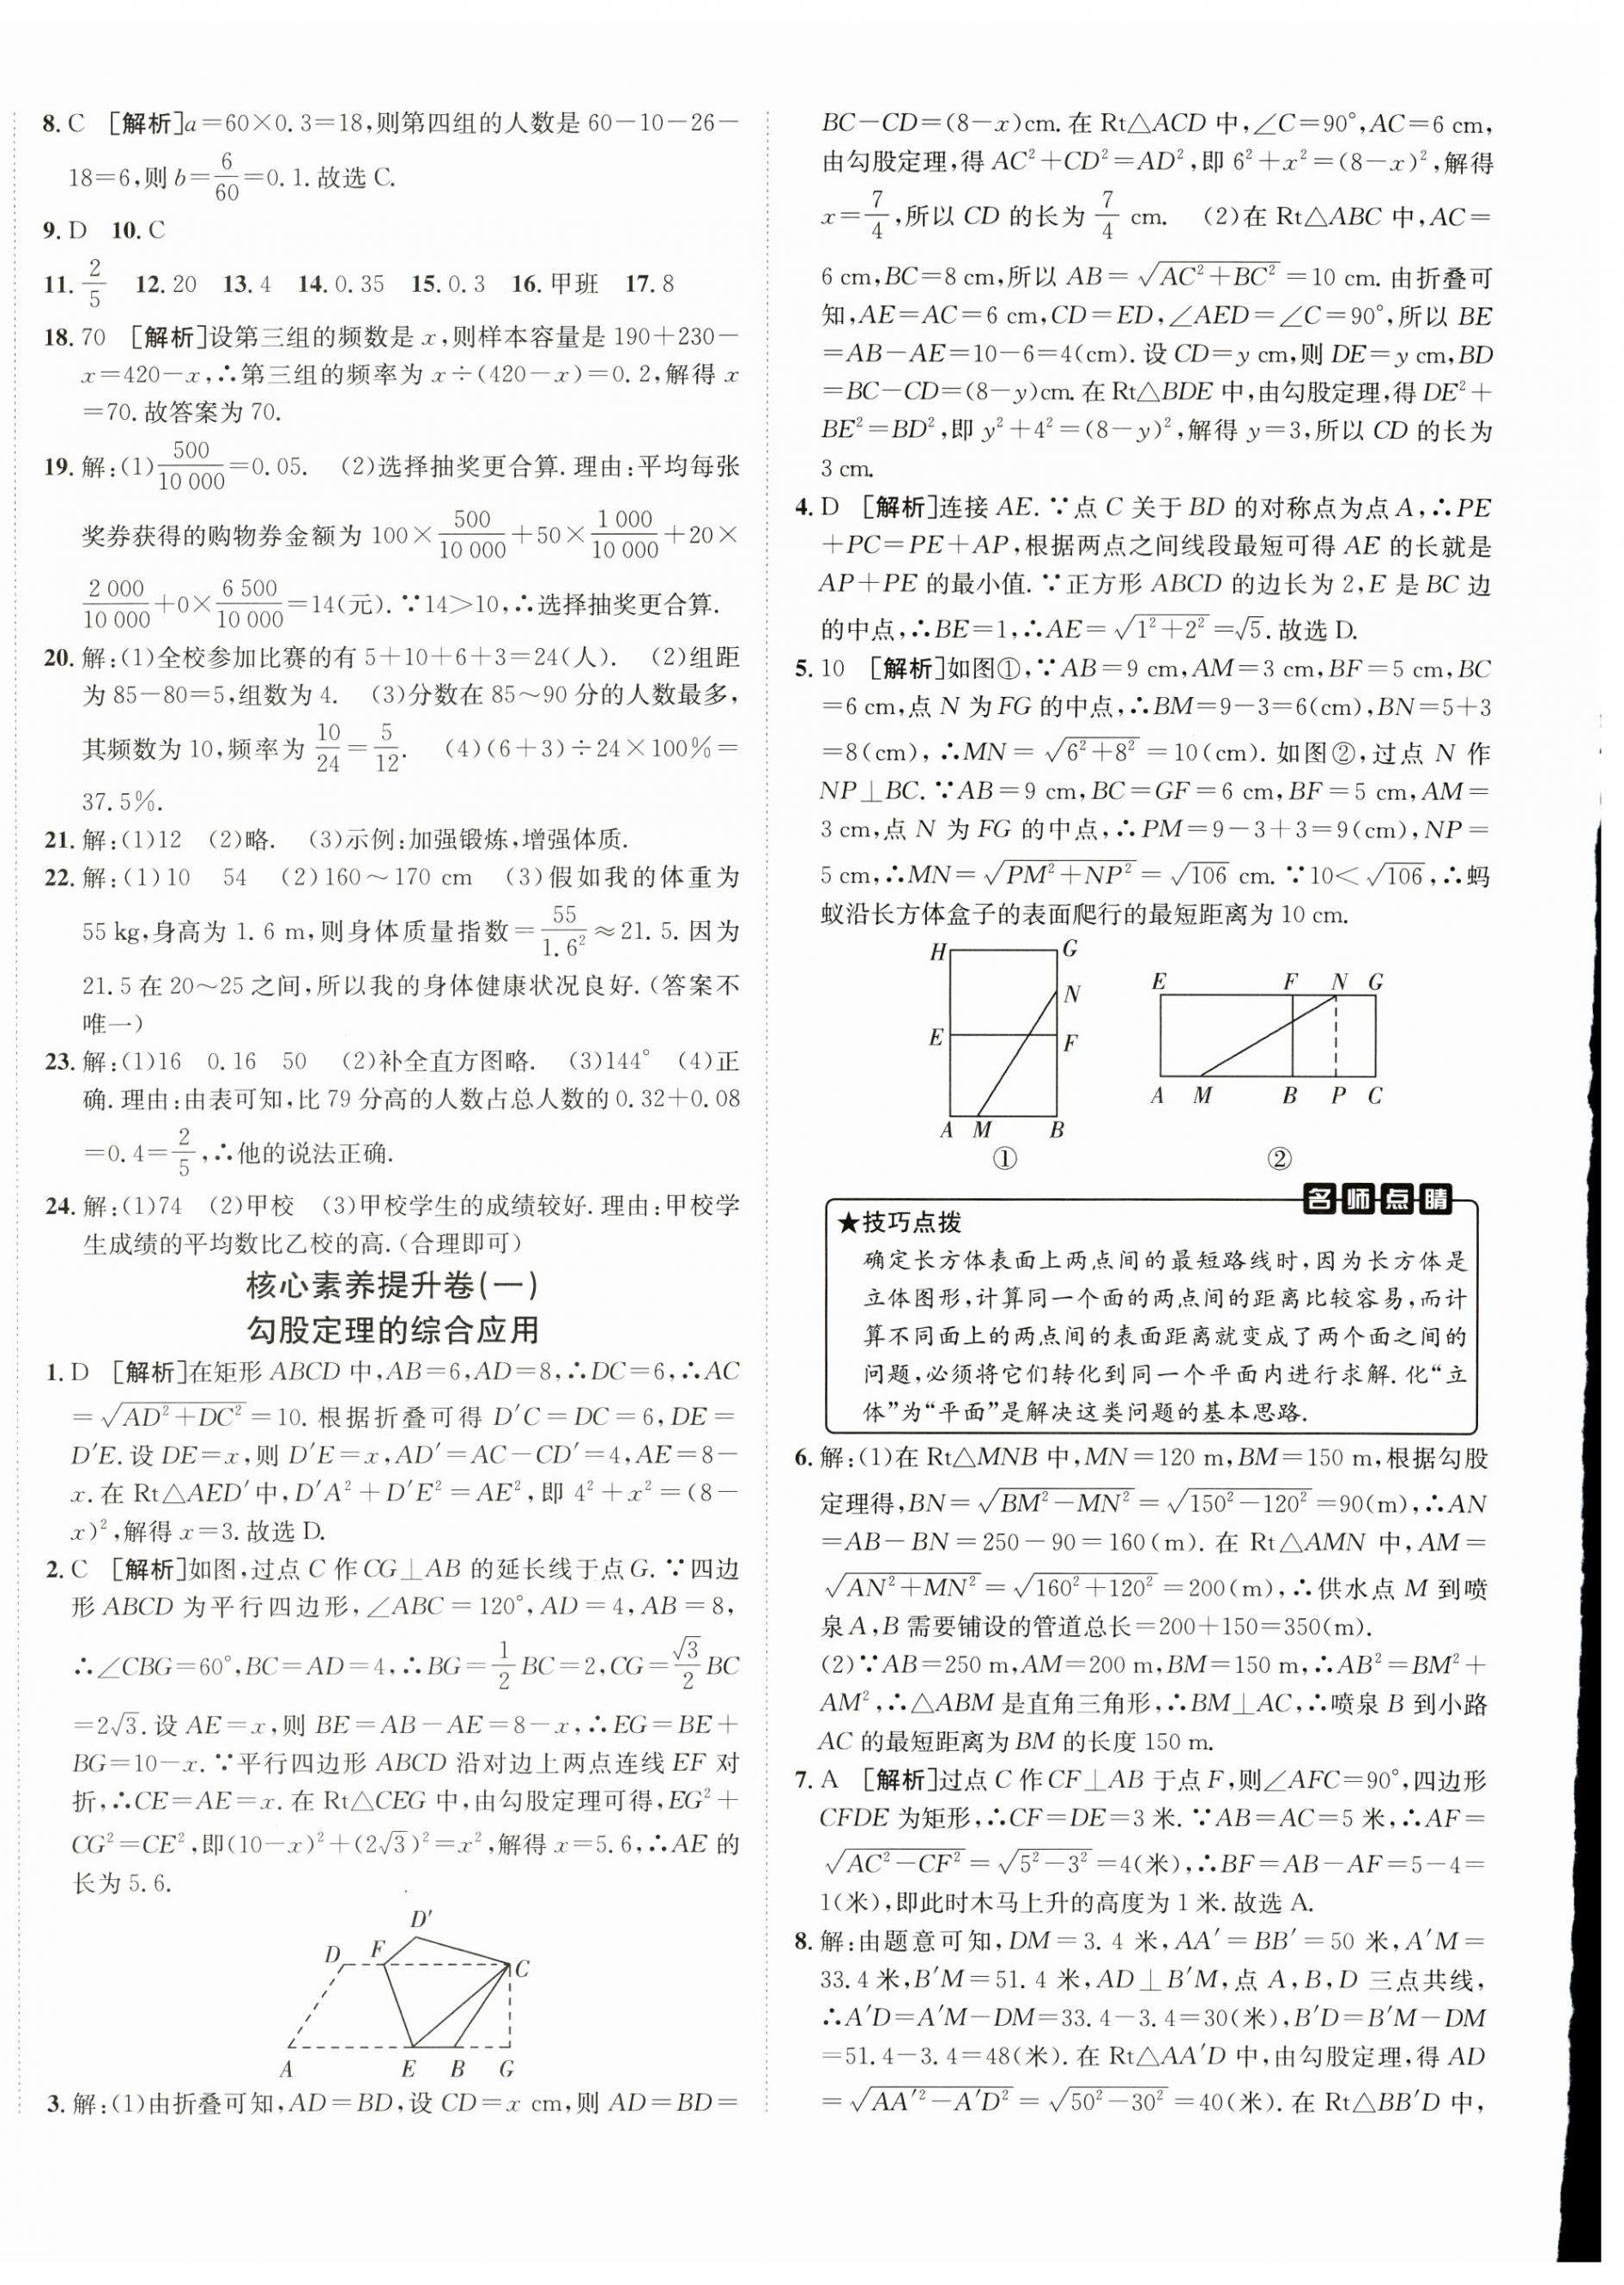 8. C [解析]a=60×0.3=18,则第四组的人数是 60-10-26-
18=6,则 b=6/60=0.1.故选 C.
9. D 10. C
11. 2/5 12. 20 13. 4 14. 0.35 15. 0.3 16. 甲班 17. 8
18. 70 [解析]设第三组的频数是 x,则样本容量是 190+230-
x=420-x,∴第三组的频率为 x÷(420-x)=0.2,解得 x
=70.故答案为 70.
19. 解:(1)500/10 000=0.05. (2)选择抽奖更合算.理由:平均每张
奖券获得的购物券金额为 100×500/10 000+50×1 000/10 000+20×
2 000/10 000+0×6 500/10 000=14(元).∵14>10,∴选择抽奖更合算.
20. 解:(1)全校参加比赛的有 5+10+6+3=24(人). (2)组距
为 85-80=5,组数为 4. (3)分数在 85~90 分的人数最多,
其频数为 10,频率为 10/24=5/12. (4)(6+3)÷24×100%=
37.5%.
21. 解:(1)12 (2)略. (3)示例:加强锻炼,增强体质.
22. 解:(1)10 54 (2)160~170 cm (3)假如我的体重为
55 kg,身高为 1.6 m,则身体质量指数=55/1.6²≈21.5.因为
21.5 在 20~25 之间,所以我的身体健康状况良好.(答案不
唯一)
23. 解:(1)16 0.16 50 (2)补全直方图略. (3)144° (4)正
确.理由:由表可知,比 79 分高的人数占总人数的 0.32+0.08
=0.4=2/5,∴他的说法正确.
24. 解:(1)74 (2)甲校 (3)甲校学生的成绩较好.理由:甲校学
生成绩的平均数比乙校的高.(合理即可)
核心素养提升卷(一)
勾股定理的综合应用
1. D [解析]在矩形 ABCD 中,AB=6,AD=8,∴DC=6,∴AC
=√(AD²+DC²)=10.根据折叠可得 D′C=DC=6,DE=
D′E.设 DE=x,则 D′E=x,AD′=AC-CD′=4,AE=8-
x.在 Rt△AED′中,D′A²+D′E²=AE²,即 4²+x²=(8-
x)²,解得 x=3.故选 D.
2. C [解析]如图,过点 C 作 CG⊥AB 的延长线于点 G.∵四边
形 ABCD 为平行四边形,∠ABC=120°,AD=4,AB=8,
∴∠CBG=60°,BC=AD=4,∴BG=1/2 BC=2,CG=√3/2 BC
=2√3.设 AE=x,则 BE=AB-AE=8-x,∴EG=BE+
BG=10-x.∵平行四边形 ABCD 沿对边上两点连线 EF 对
折,∴CE=AE=x.在 Rt△CEG 中,由勾股定理可得,EG²+
CG²=CE²,即(10-x)²+(2√3)²=x²,解得 x=5.6,∴AE 的
长为 5.6.
D′
D F C
A E B G
3. 解:(1)由折叠可知,AD=BD,设 CD=x cm,则 AD=BD=
BC-CD=(8-x)cm.在 Rt△ACD 中,∠C=90°,AC=6 cm,
由勾股定理,得 AC²+CD²=AD²,即 6²+x²=(8-x)²,解得
x=7/4,所以 CD 的长为 7/4 cm. (2)在 Rt△ABC 中,AC=
6 cm,BC=8 cm,所以 AB=√(AC²+BC²)=10 cm.由折叠可
知,AE=AC=6 cm,CD=ED,∠AED=∠C=90°,所以 BE
=AB-AE=10-6=4(cm).设 CD=y cm,则 DE=y cm,BD
=BC-CD=(8-y)cm.在 Rt△BDE 中,由勾股定理,得 DE²+
BE²=BD²,即 y²+4²=(8-y)²,解得 y=3,所以 CD 的长为
3 cm.
4. D [解析]连接 AE.∵点 C 关于 BD 的对称点为点 A,∴PE
+PC=PE+AP,根据两点之间线段最短可得 AE 的长就是
AP+PE 的最小值.∵正方形 ABCD 的边长为 2,E 是 BC 边
的中点,∴BE=1,∴AE=√(1²+2²)=√5.故选 D.
5. 10 [解析]如图①,∵AB=9 cm,AM=3 cm,BF=5 cm,BC
=6 cm,点 N 为 FG 的中点,∴BM=9-3=6(cm),BN=5+3
=8(cm),∴MN=√(6²+8²)=10(cm).如图②,过点 N 作
NP⊥BC.∵AB=9 cm,BC=GF=6 cm,BF=5 cm,AM=
3 cm,点 N 为 FG 的中点,∴PM=9-3+3=9(cm),NP=
5 cm,∴MN=√(PM²+NP²)=√106 cm.∵10<√106,∴蚂
蚁沿长方体盒子的表面爬行的最短距离为 10 cm.
H G
N
E F
A M B
①
E F N G
A M B P C
②
名师点睛
★技巧点拨
确定长方体表面上两点间的最短路线时,因为长方体是
立体图形,计算同一个面的两点间的距离比较容易,而计
算不同面上的两点间的表面距离就变成了两个面之间的
问题,必须将它们转化到同一个平面内进行求解.化“立
体”为“平面”是解决这类问题的基本思路.
6. 解:(1)在 Rt△MNB 中,MN=120 m,BM=150 m,根据勾股
定理得,BN=√(BM²-MN²)=√(150²-120²)=90(m),∴AN
=AB-BN=250-90=160(m).在 Rt△AMN 中,AM=
√(AN²+MN²)=√(160²+120²)=200(m),∴供水点 M 到喷
泉 A,B 需要铺设的管道总长=200+150=350(m).
(2)∵AB=250 m,AM=200 m,BM=150 m,∴AB²=BM²+
AM²,∴△ABM 是直角三角形,∴BM⊥AC,∴喷泉 B 到小路
AC 的最短距离为 BM 的长度 150 m.
7. A [解析]过点 C 作 CF⊥AB 于点 F,则∠AFC=90°,四边形
CFDE 为矩形,∴CF=DE=3 米.∵AB=AC=5 米,∴AF=
√(AC²-CF²)=√(5²-3²)=4(米),∴BF=AB-AF=5-4=
1(米),即此时木马上升的高度为 1 米.故选 A.
8. 解:由题意可知,DM=3.4 米,AA′=BB′=50 米,A′M=
33.4 米,B′M=51.4 米,AD⊥B′M,点 A,B,D 三点共线,
∴A′D=A′M-DM=33.4-3.4=30(米),B′D=B′M-DM
=51.4-3.4=48(米).在 Rt△AA′D 中,由勾股定理,得 AD
=√(AA′²-A′D²)=√(50²-30²)=40(米).在 Rt△BB′D 中,